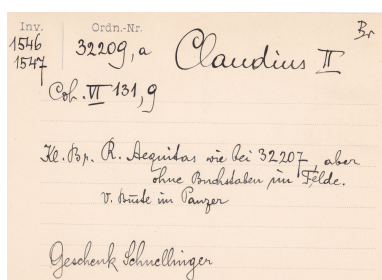 Inv. Ordn.-Nr. Br
1546 32209, a Claudius II
1547
Coh. VI 131, 9
Kl. Br. R. Aequitas wie bei 32207, aber
ohne Buchstaben im Felde.
V. Büste im Panzer
Geschenk Schnellinger